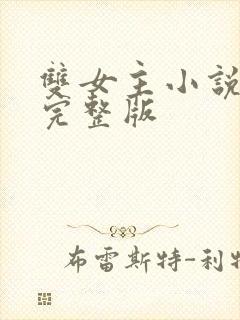 雙女主小說
完整版
布雷斯特-利特